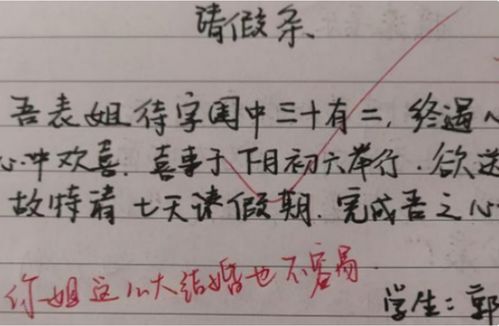 请假条
吾表姐待字闺中三十有二，终遇
心中欢喜．喜事于下月初六举行．欲送
故特请七天课假期．完成吾之心
你姐这么大结婚也不容易
学生：郭